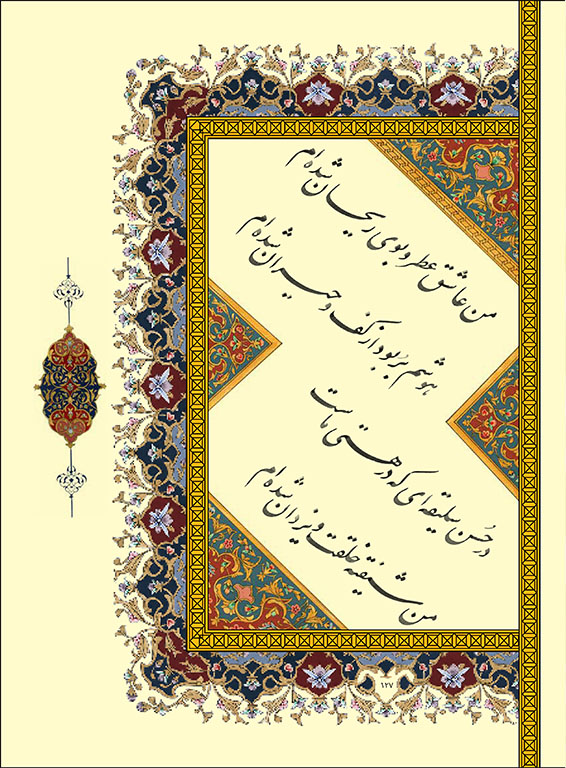 من عاشق عطر و بوی ریحان شده‌ام
هوشم بربود از کف و حیران شده‌ام
در حُسن سلیقه‌ای که در هستی ماست
من شیفتهٔ خلقت و یزدان شده‌ام
۱۲۷